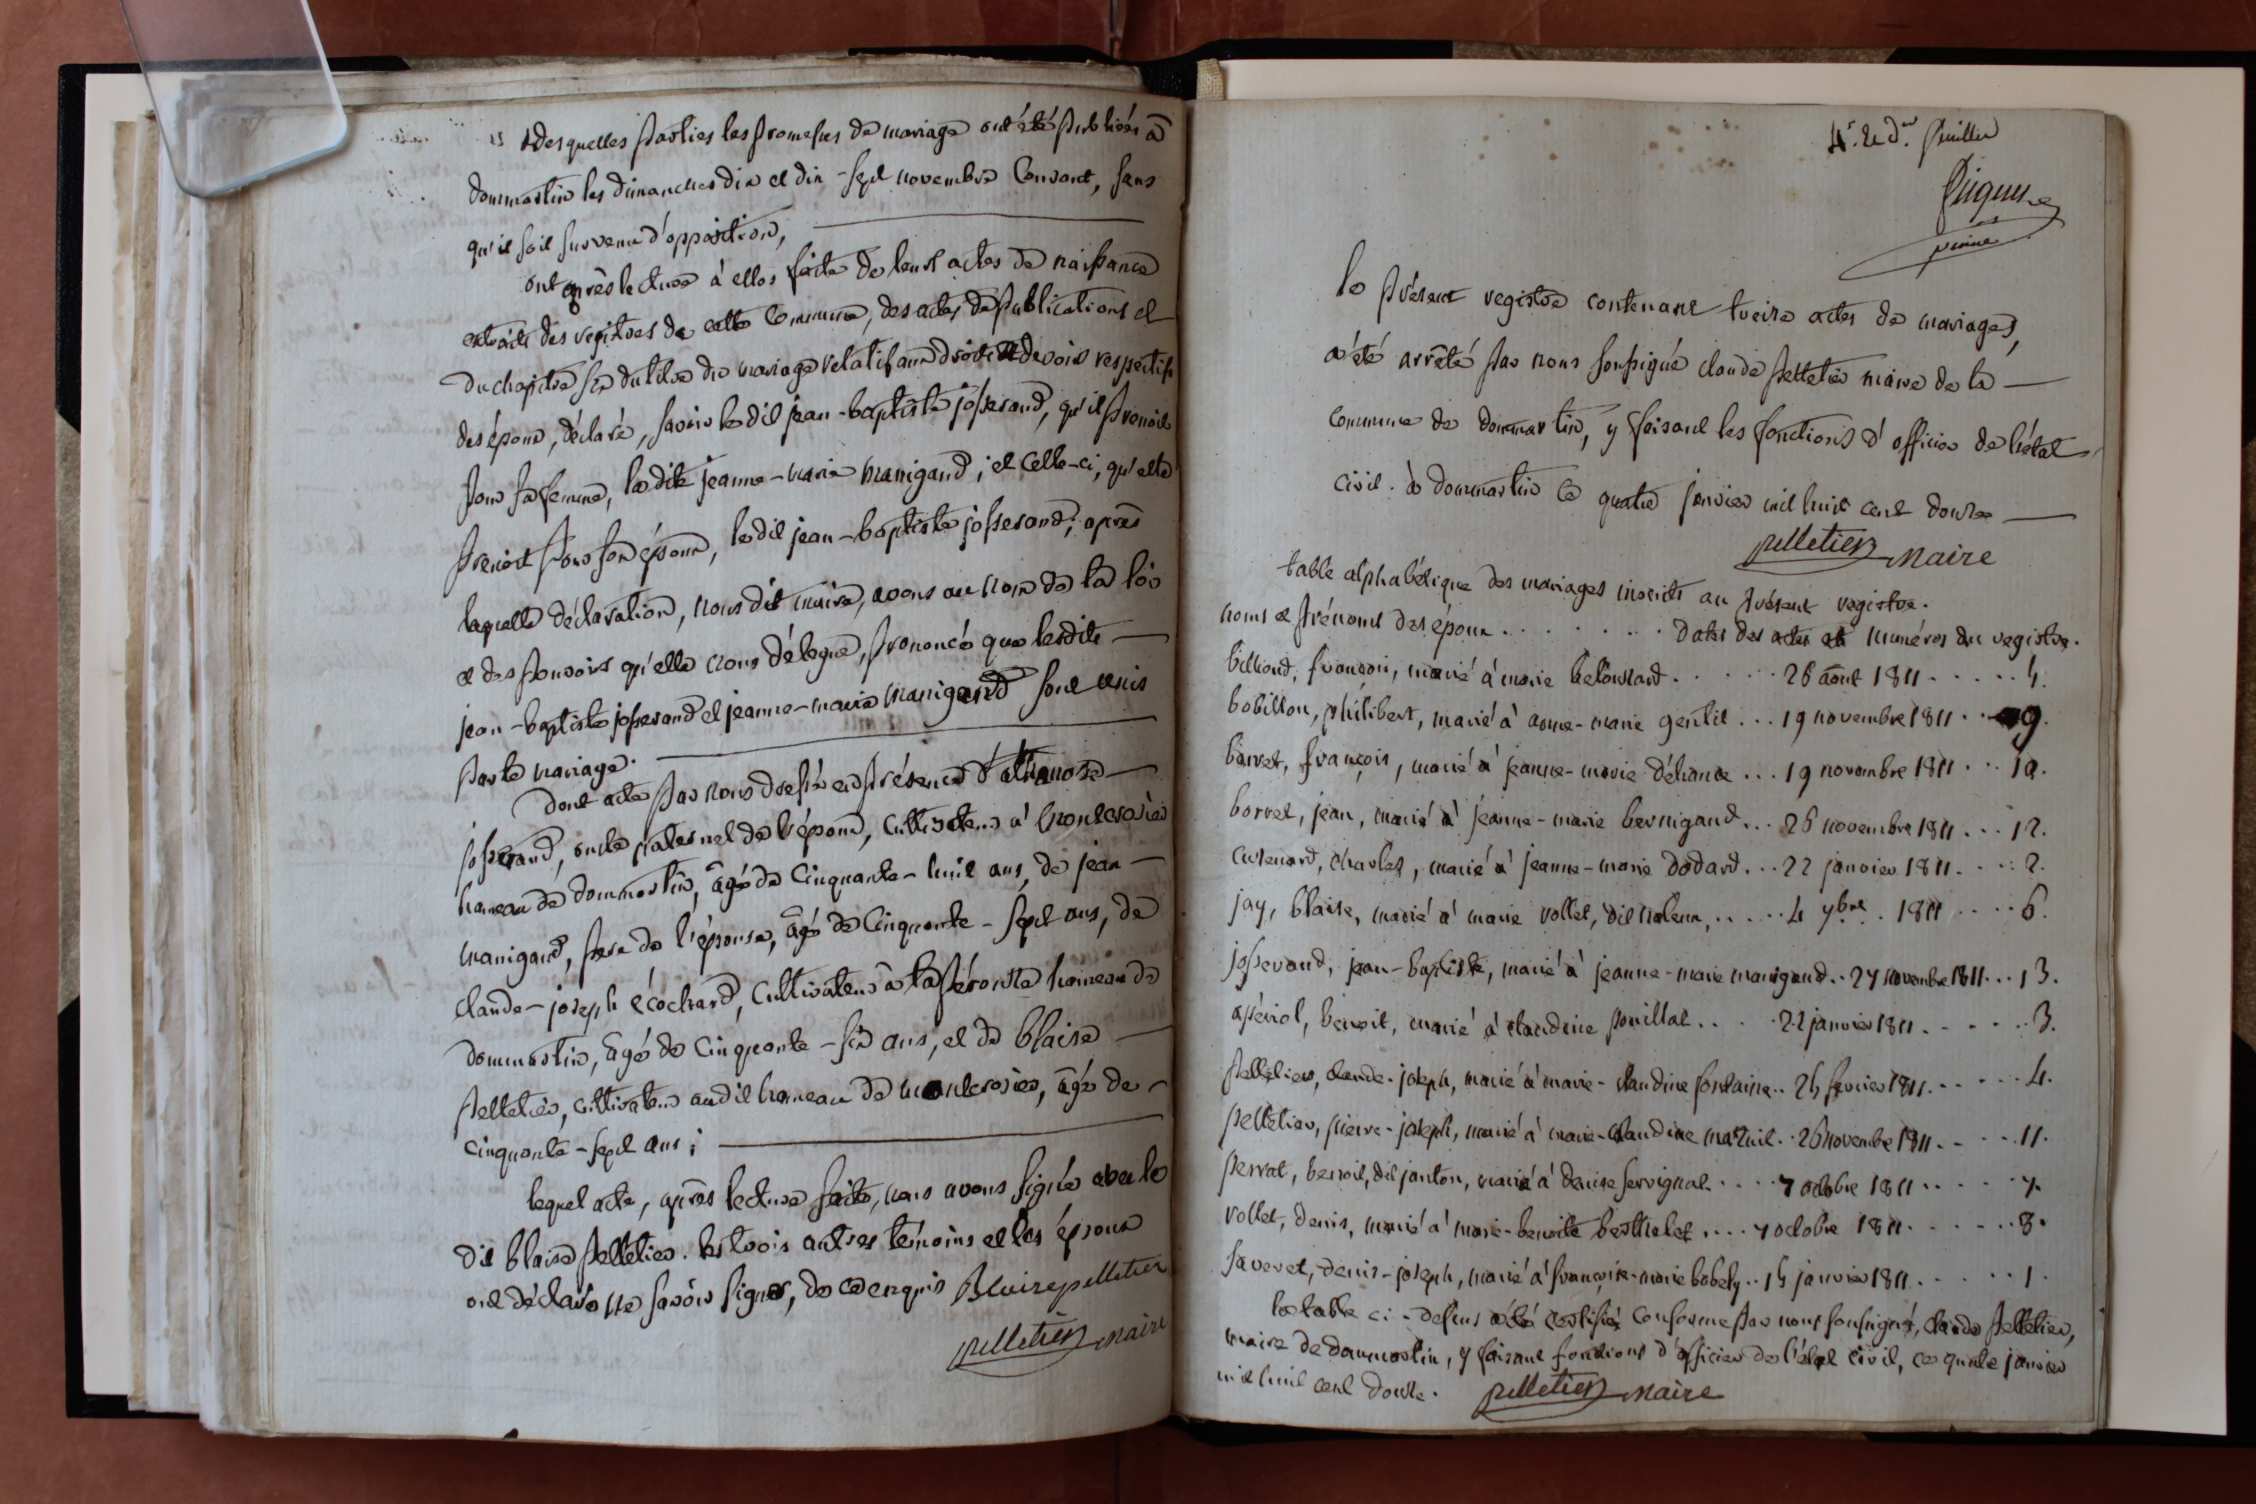 desquelles parties les promesses de mariage ont été publiées à
dommartin les dimanches dix et dix-sept novembre Courant, sans
qu'il soit survenu d'opposition,
ont après lecture à elles faite de leurs actes de naissance
extraits des registres de cette Commune, des actes de publications et
du chapitre six du titre du mariage relatif aux droits et devoirs respectifs
des époux, déclaré, savoir le dit jean-baptiste josserand, qu'il prenoit
pour sa femme, la dite jeanne-marie manigand; et Celle-ci, qu'elle
prenoit pour son époux, le dit jean-baptiste josserand; après
laquelle déclaration, nous dit maire, avons au nom de la loi
et des pouvoirs qu'elle nous délègue, prononcé que lesdits
jean-baptiste josserand et jeanne-marie manigand sont unis
par le mariage.
Dont acte par nous dressé en présence d'athanase
josserand, oncle paternel de l'époux, Cultivateur à montcrozier
hameau de dommartin, âgé de Cinquante-huit ans, de jean
manigand, père de l'épouse, âgé de Cinquante-sept ans, de
claude-joseph écochard, Cultivateur à la pérouse hameau de
dommartin, âgé de Cinquante-six ans, et de blaise
pelletier, cultivateur audit hameau de montcrosier, âgé de
cinquante-sept ans;
lequel acte, après lecture faite, nous avons signé avec le
dit blaise pelletier. les trois autres témoins et les époux
ont déclaré ne savoir signer, de ce enquis Blaise pelletier
pelletier maire
4.e et d.er feuillet
le présent registre contenant treize actes de mariages,
a été arrêté par nous soussigné claude pelletier maire de la
commune de dommartin, y faisant les fonctions d'officier de l'état
civil. à dommartin ce quatre janvier mil huit cent douze
pelletier maire
table alphabétique des mariages inscrits au présent registre.
noms et prénoms des époux . . . . . . . dates des actes et numéros du registre.
billioud, françois, marié à marie belouzard . . . . . 26 août 1811 . . . . . 5.
bobillon, philibert, marié à anne-marie gentil . . . 19 novembre 1811 . . 9.
borret, françois, marié à jeanne-marie déliance . . . 19 novembre 1811 . . . 10.
borret, jean, marié à jeanne-marie bernigaud . . . 26 novembre 1811 . . . 12.
cuzenard, charles, marié à jeanne-marie dodard . . . 22 janvier 1811 . . . . 2.
jay, blaise, marié à marie vollet, dit . . . . . 4 7bre. 1811 . . . . 6.
josserand, jean-baptiste, marié à jeanne-marie manigand . . 27 novembre 1811 . . . 13.
benoit, marié à claudine pouillat . . . . 22 janvier 1811 . . . . . . 3.
pelletier, claude-joseph, marié à marie-claudine fontaine . . 25 fevrier 1811 . . . . . . 4.
pelletier, pierre-joseph, marié à marie-claudine mazuil . . 26 novembre 1811 . . . . 11.
perrat, benoit, dit janton, marié à denise servignat . . . . 7 octobre 1811 . . . . . 7.
vollet, denis, marié à marie-benoite berthelet . . . . 7 octobre 1811 . . . . . . 8.
saveret, denis-joseph, marié à françoise-marie bobely . . 15 janvier 1811 . . . . . 1.
la table ci-dessus a été certifiée conforme par nous soussigné, claude pelletier,
maire de dommartin, y faisant fonctions d'officier de l'état civil, ce quatre janvier
mil huit cent douze. pelletier maire